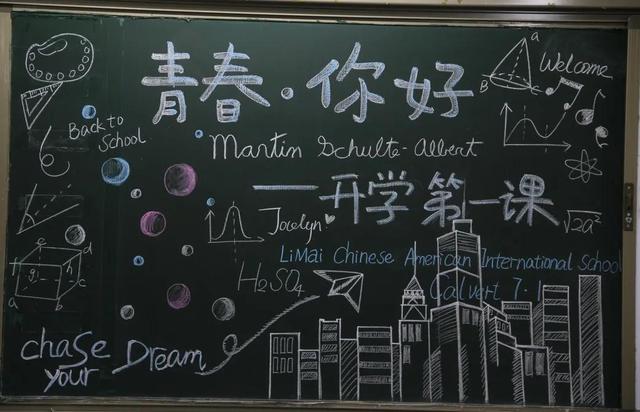 青春·你好
Welcome
a
B
c
Back to
School
Martin Schulte-Albert
——开学第一课
Jocelyn
√2a²
LiMai Chinese American International School
H₂SO₄
Calvert 7.1
a
b
c
d
g
h
chase Dream
your